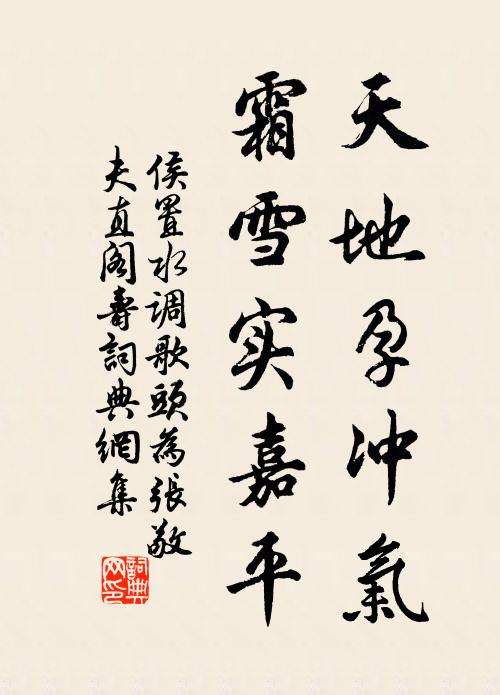 天地孕冲氣
霜雪实嘉平
侯置水调歌頭為張敬
夫直阁壽詞典網集
詞典网印